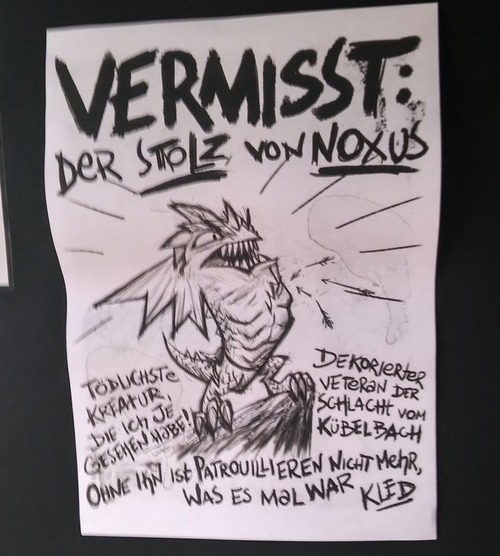 VERMISST:
DER STOLZ VON NOXUS
TÖDLICHSTE
KREATUR,
DIE ICH JE
GESEHEN HABE!
DEKORIERTER
VETERAN DER
SCHLACHT VOM
KÜBELBACH
OHNE IHN IST PATROUILLIEREN NICHT MEHR,
WAS ES MAL WAR
KLED